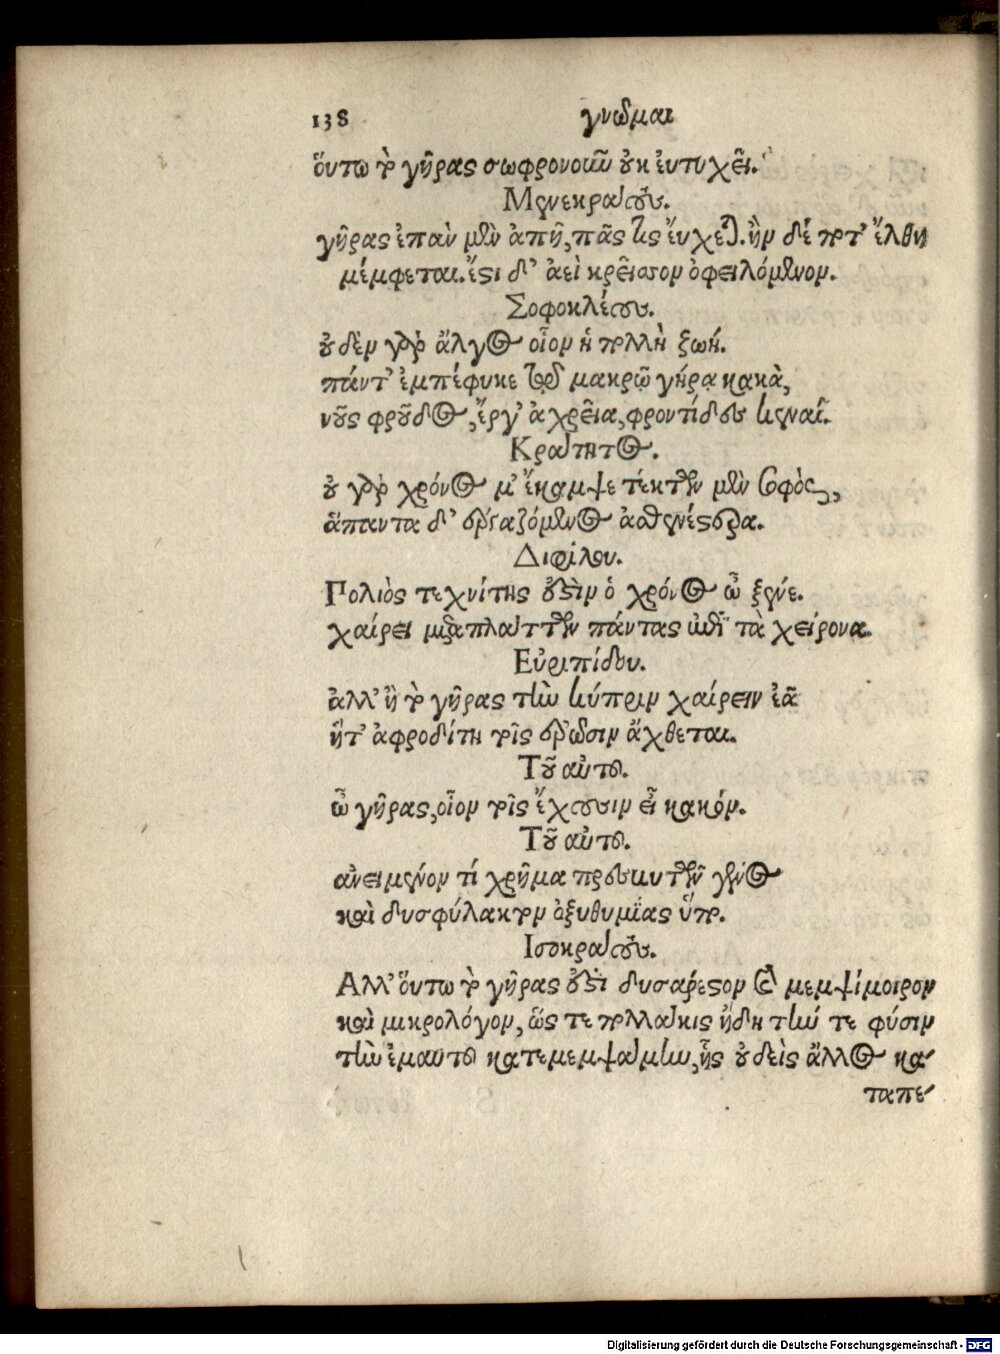 138 γνῶμαι
ὅυτω τὸ γῆρας σωφρονοιῶ ὀυκ ἐυτυχεῖ.
Μενεκράτους.
γῆρας ἐπὰν μὲν ἀπῇ, πᾶς τις ἔυχεται. ἢν δέ ποτ' ἔλθῃ
μέμφεται. ἔστι δ' ἀεὶ κρεῖσσον ὀφειλόμενον.
Σοφοκλέους.
ὀυδὲν γὰρ ἄλγος οἷον ἡ πολλὴ ζωή.
πάντ' ἐμπέφυκε τῷ μακρῷ γήρᾳ κακὰ,
νοῦς φροῦδος, ἔργ' ἀχρεῖα, φροντίδες κεναῖ.
Κράτητος.
ὀυ γὰρ χρόνος μ' ἔκαμψε τέκτων μὲν σοφὸς,
ἅπαντα δ' ἐργαζόμενος ἀσθενέστερα.
Διφίλου.
Πολιὸς τεχνίτης ὀυστὶν ὁ χρόνος ὦ ξένε.
χαίρει μεταπλάττων πάντας ἐπὶ τὰ χείρονα.
Εὐριπίδου.
ἀλλ' ἢ τὸ γῆρας τὴν κύπριν χαίρειν ἐᾶ
ἥτ' ἀφροδίτη τοῖς γέρωσιν ἄχθεται.
Τοῦ αὐτοῦ.
ὦ γῆρας, οἷον τοῖς ἔχουσιν εἶ κακόν.
Τοῦ αὐτοῦ.
ἀνειμένον τί χρῆμα πρεσβυτῶν γένος
καὶ δυσφύλακτον ὀξυθυμίας ὕπο.
Ισοκράτους.
Αλλ' ὅυτω τὸ γῆρας ἐστὶ δυσάρεστον καὶ μεμψίμοιρον
καὶ μικρολόγον, ὥς τε πολλάκις ἤδη τήν τε φύσιν
τὴν ἐμαυτοῦ κατεμεμψάμην, ἧς ὀυδεὶς ἄλλος κα-
ταπε-
Digitalisierung gefördert durch die Deutsche Forschungsgemeinschaft - DFG